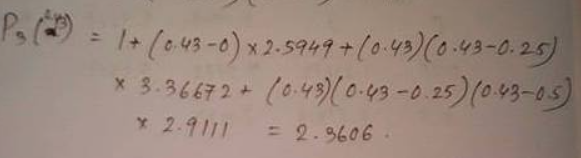 P₃(0.43) = 1 + (0.43-0) × 2.5949 + (0.43)(0.43-0.25)
× 3.36672 + (0.43)(0.43-0.25)(0.43-0.5)
× 2.9111 = 2.3606.